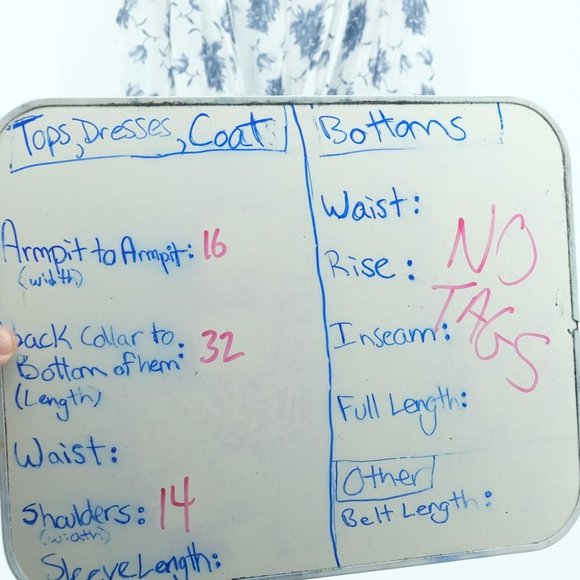 Tops, Dresses, Coat
Armpit to Armpit: 16
(width)
back Collar to
Bottom of hem: 32
(Length)
Waist:
Shoulders: 14
(width)
Sleeve Length:
Bottoms
Waist:
Rise:
Inseam:
Full Length:
NO
TAGS
Other
Belt Length: